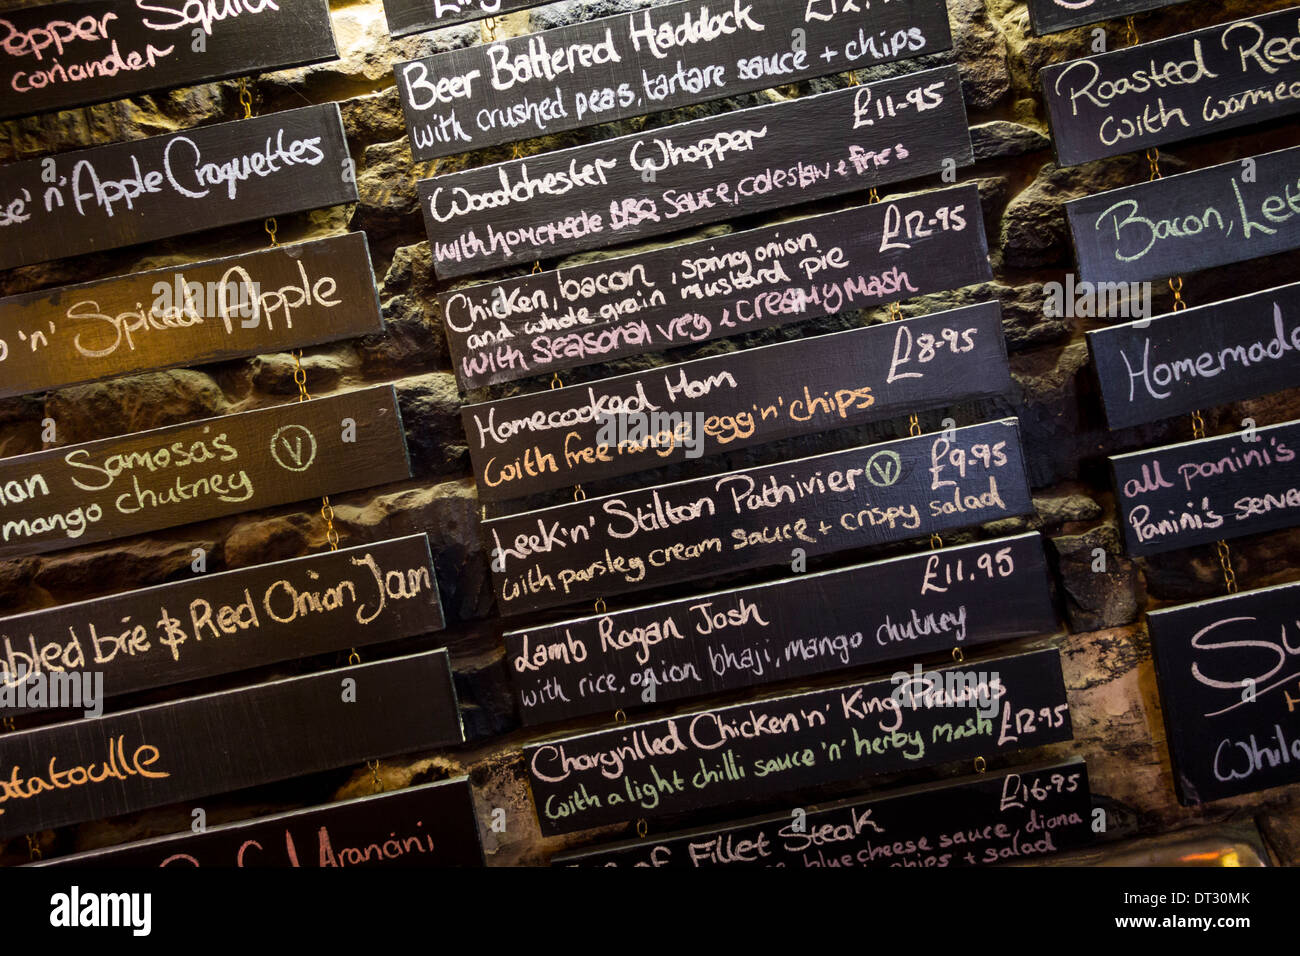 Pepper Squid
coriander
'n' Apple Croquettes
'n' Spiced Apple
Samosa's V
mango chutney
brie & Red Onion Jam
Arancini
Beer Battered Haddock
with crushed peas, tartare sauce + chips
Woodchester Whopper £11-95
with homemade BBQ sauce, coleslaw + fries
Chicken, bacon, spring onion £12-95
and whole grain mustard pie
with seasonal veg & creamy mash
Homecooked Ham £8-95
with free range egg 'n' chips
Leek 'n' Stilton Pathivier V £9-95
with parsley cream sauce + crispy salad
Lamb Rogan Josh £11.95
with rice, onion bhaji, mango chutney
Chargrilled Chicken 'n' King Prawns
with a light chilli sauce 'n' herby mash £12-95
Fillet Steak £16-95
blue cheese sauce, diana
chips + salad
Roasted Red
with
Bacon,
Homemade
all panini's
Panini's
alamy
alamy stock photo
DT30MK
www.alamy.com